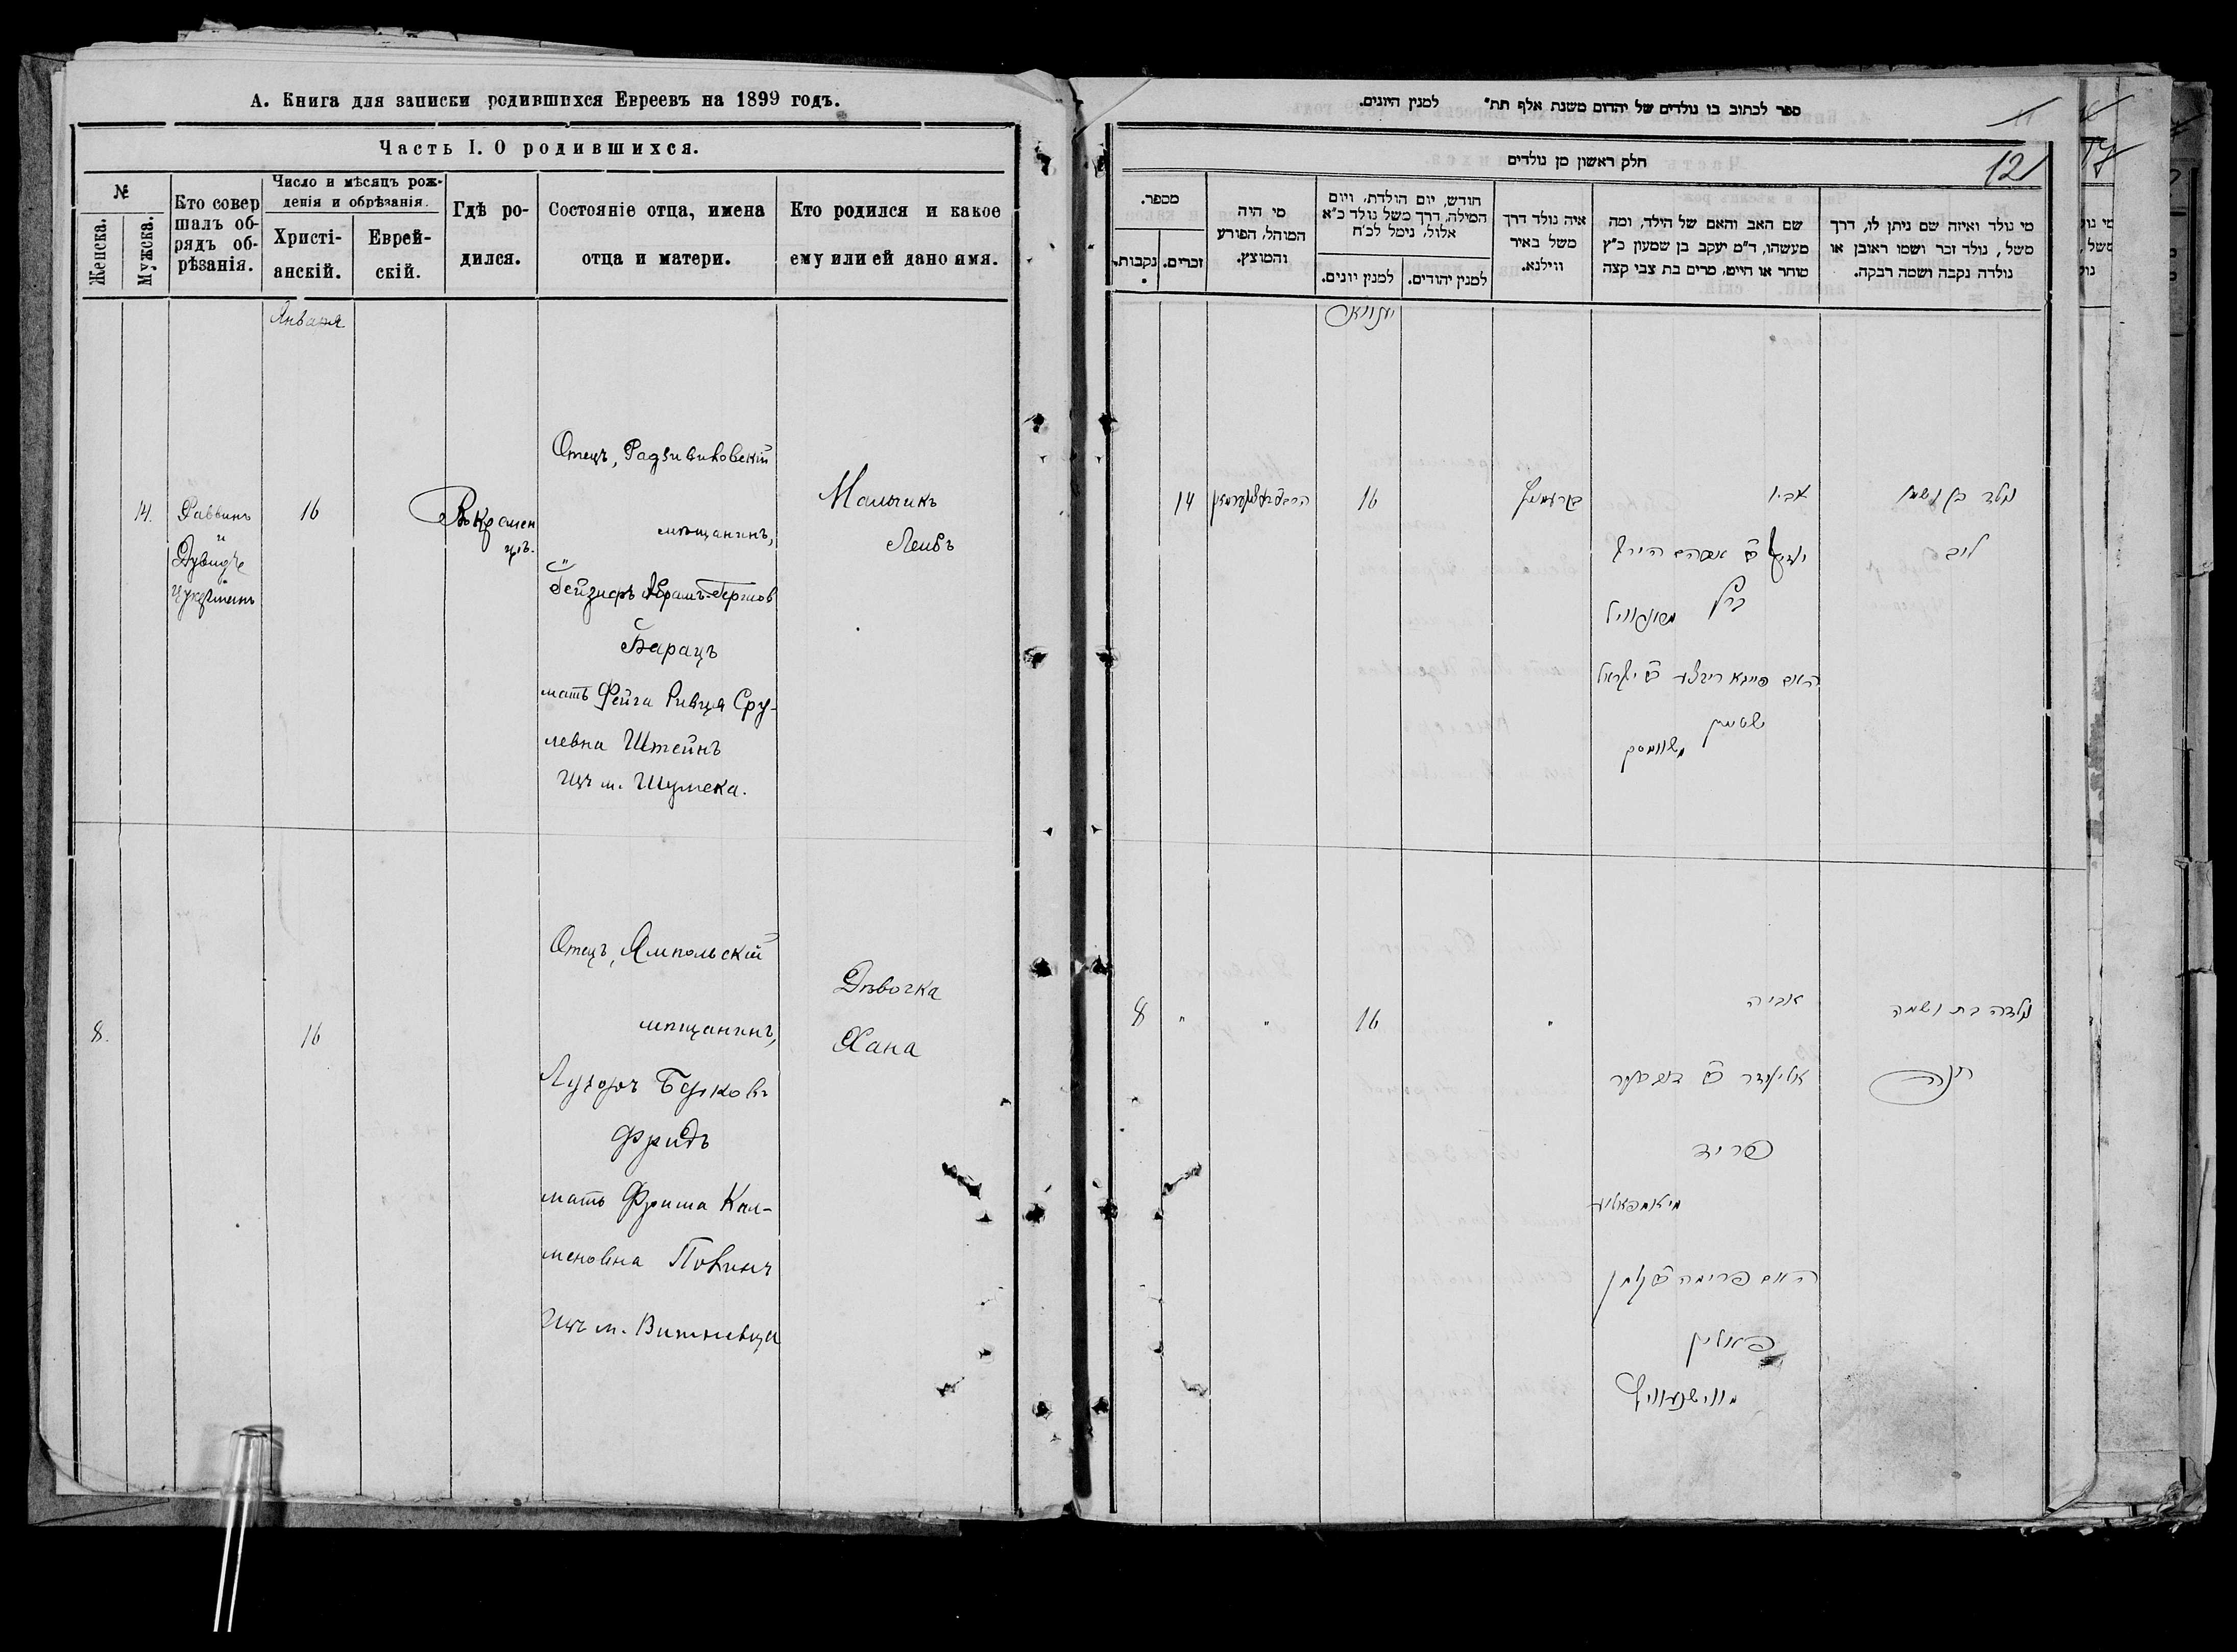 А. Книга для записки родившихся Евреевъ на 1899 годъ.
Часть I. О родившихся.
№
Женска.
Мужска.
Кто совер
шалъ об-
рядъ об-
рѣзанія.
Число и мѣсяцъ рож-
денія и обрѣзанія.
Христі-
анскій.
Еврей-
скій.
Гдѣ ро-
дился.
Состояніе отца, имена
отца и матери.
Кто родился и какое
ему или ей дано имя.
Января
14.
Раввинъ
и
Дувидъ
16
Въ Кремен
цѣ.
Отецъ, Радзивиловскій
мѣщанинъ,
Абрамъ-Гершков
Барацъ
мать Фейга Ривця Сру-
левна Штейнъ
Изъ м. Шумска.
Мальчикъ
Лейбъ
8.
16
Отецъ, Ямпольскій
мѣщанинъ,
Лузоръ Берковъ
Фридъ
мать Фрима Кал-
меновна
Изъ м. Вишневца
Дѣвочка
Хана
ספר לכתוב בו נולדים של יהדום משנת אלף תת" למנין היונים.
12
חלק ראשון מן נולדים
מספר.
נקבות.
זכרים.
מי היה
המוהל, הפורע
והמוצץ.
חודש, יום הולדת, ויום
המילה, דרך משל נולד כ"א
אלול, נימל לכ"ח
למנין יונים.
למנין יהודים.
איה נולד דרך
משל באיר
ווילנא.
שם האב והאם של הילד, ומה
מעשהו, ד"מ יעקב בן שמעון כ"ץ
סוחר או חייט, מרים בת צבי קצה
מי נולד ואיזה שם ניתן לו, דרך
משל, נולד זכר ושמו ראובן או
נולדה נקבה ושמה רבקה.
14
16
אביו
נולד בן ושמו
ליב
האם פייגא ריבצע ישראל
שטיין
משומסק
8
"
"
16
"
אביה
נולדה בת ושמה
חנה
פריד
מיאמפאליע
האם פרימה קלמן